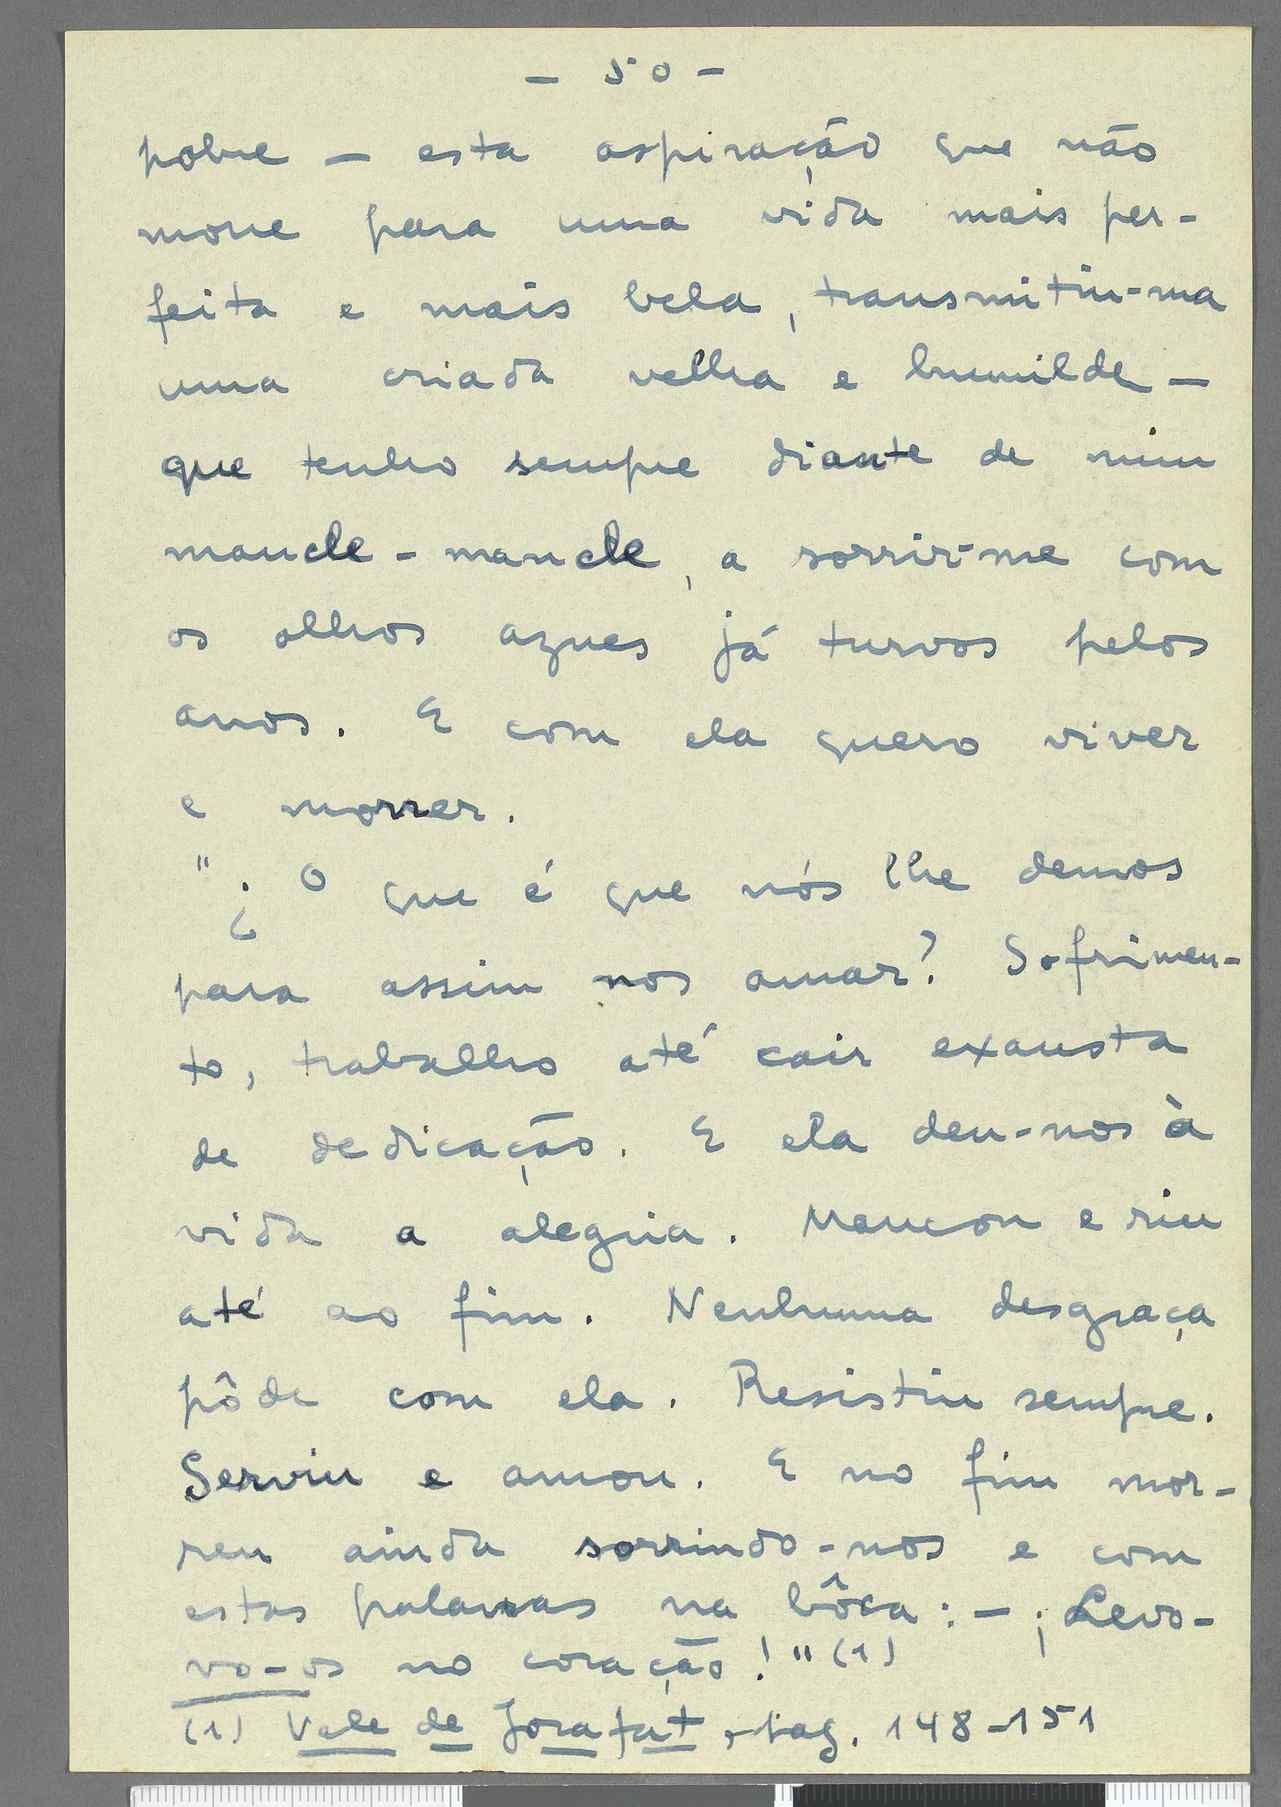 - 50 -
pobre - esta aspiração que não
morre para uma vida mais per-
feita e mais bela, transmitiu-ma
uma criada velha e humilde -
que tenho sempre diante de mim
mancle-mancle, a sorrir-me com
os olhos azues já turvos pelos
anos. E com ela quero viver
e morrer.
"¿O que é que nós lhe demos
para assim nos amar? Sofrimen-
to, trabalho até cair exausta
de dedicação. E ela deu-nos à
vida a alegria. Mancou e riu
até ao fim. Nenhuma desgraça
pôde com ela. Resistiu sempre.
Serviu e amou. E no fim mor-
reu ainda sorrindo-nos e com
estas palavras na bôca: - ¡Levo-
vo-os no coração!" (1)
(1) Vale de Josafat, pag. 148-151